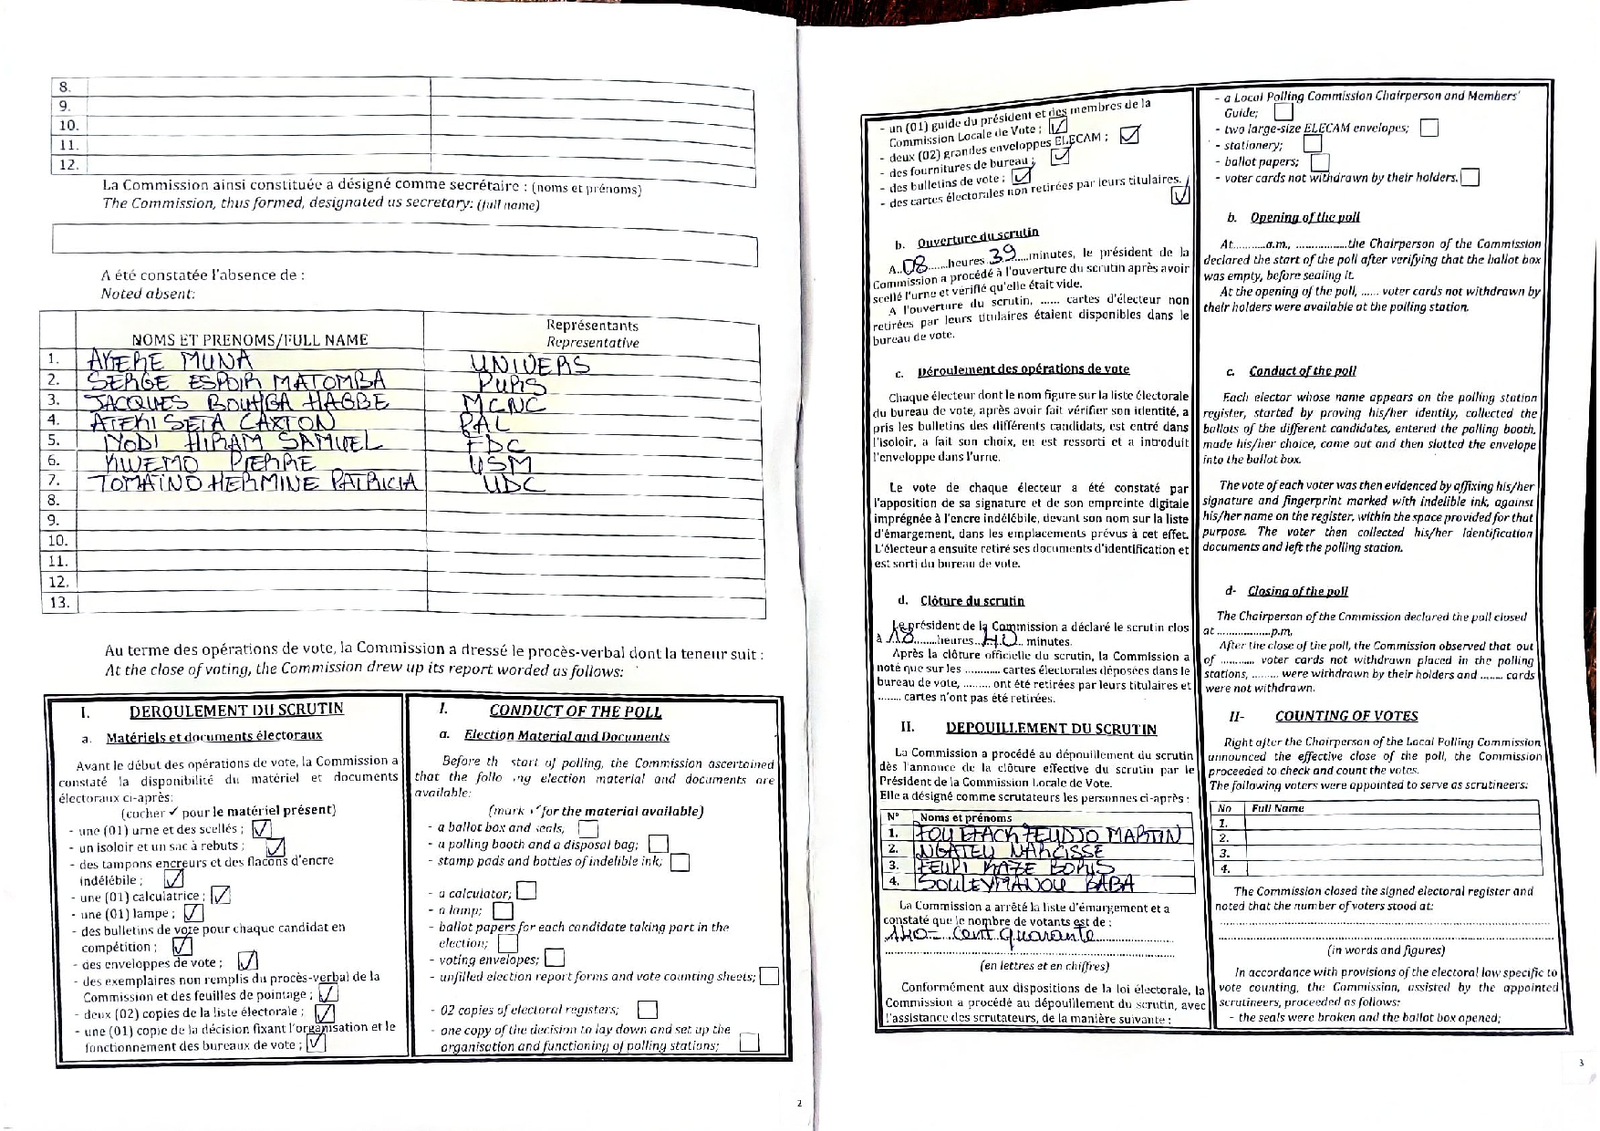 8.
9.
10.
11.
12.
La Commission ainsi constituée a désigné comme secrétaire : (noms et prénoms)
The Commission, thus formed, designated us secretary: (full name)
A été constatée l'absence de :
Noted absent:
NOMS ET PRENOMS/FULL NAME
Représentants
Representative
1. AKERE MUNA UNIVERS
2. SERGE ESPOIR MATOMBA PURS
3. JACQUES BOUHGA HAGBE MCNC
4. ATEKI SETA CAXTON PAL
5. IYODI HIRAM SAMUEL FDC
6. KWEMO PIERRE USM
7. TOMAINO HERMINE PATRICIA UDC
8.
9.
10.
11.
12.
13.
Au terme des opérations de vote, la Commission a dressé le procès-verbal dont la teneur suit :
At the close of voting, the Commission drew up its report worded as follows:
I. DEROULEMENT DU SCRUTIN
a. Matériels et documents électoraux
Avant le début des opérations de vote, la Commission a
constaté la disponibilité du matériel et documents
électoraux ci-après:
(cocher ✓ pour le matériel présent)
- une (01) urne et des scellés ; ☑
- un isoloir et un sac à rebuts ; ☑
- des tampons encreurs et des flacons d'encre
indélébile ; ☑
- une (01) calculatrice ; ☑
- une (01) lampe ; ☑
- des bulletins de vote pour chaque candidat en
compétition ; ☑
- des enveloppes de vote ; ☑
- des exemplaires non remplis du procès-verbal de la
Commission et des feuilles de pointage ; ☑
- deux (02) copies de la liste électorale ; ☑
- une (01) copie de la décision fixant l'organisation et le
fonctionnement des bureaux de vote ; ☑
I. CONDUCT OF THE POLL
a. Election Material and Documents
Before th start of polling, the Commission ascertained
that the follo ing election material and documents are
available:
(mark ✓ for the material available)
- a ballot box and seals, ☐
- a polling booth and a disposal bag; ☐
- stamp pads and bottles of indelible ink; ☐
- a calculator; ☐
- a lamp; ☐
- ballot papers for each candidate taking part in the
election; ☐
- voting envelopes; ☐
- unfilled election report forms and vote counting sheets; ☐
- 02 copies of electoral registers; ☐
- one copy of the decision to lay down and set up the
organisation and functioning of polling stations; ☐
2
- un (01) guide du président et des membres de la
Commission Locale de Vote ; ☑
- deux (02) grandes enveloppes ELECAM ; ☑
- des fournitures de bureau ; ☑
- des bulletins de vote ; ☑
- des cartes électorales non retirées par leurs titulaires. ☑
b. Ouverture du scrutin
A..08......heures..39.....minutes, le président de la
Commission a procédé à l'ouverture du scrutin après avoir
scellé l'urne et vérifié qu'elle était vide.
A l'ouverture du scrutin, ...... cartes d'électeur non
retirées par leurs titulaires étaient disponibles dans le
bureau de vote.
c. Déroulement des opérations de vote
Chaque électeur dont le nom figure sur la liste électorale
du bureau de vote, après avoir fait vérifier son identité, a
pris les bulletins des différents candidats, est entré dans
l'isoloir, a fait son choix, en est ressorti et a introduit
l'enveloppe dans l'urne.
Le vote de chaque électeur a été constaté par
l'apposition de sa signature et de son empreinte digitale
imprégnée à l'encre indélébile, devant son nom sur la liste
d'émargement, dans les emplacements prévus à cet effet.
L'électeur a ensuite retiré ses documents d'identification et
est sorti du bureau de vote.
d. Clôture du scrutin
Le président de la Commission a déclaré le scrutin clos
à 18.......heures...40... minutes.
Après la clôture officielle du scrutin, la Commission a
noté que sur les ........... cartes électorales déposées dans le
bureau de vote, ......... ont été retirées par leurs titulaires et
........ cartes n'ont pas été retirées.
II. DEPOUILLEMENT DU SCRUTIN
La Commission a procédé au dépouillement du scrutin
dès l'annonce de la clôture effective du scrutin par le
Président de la Commission Locale de Vote.
Elle a désigné comme scrutateurs les personnes ci-après :
N° Noms et prénoms
1. MARTIN
2. NGATEU NARCISSE
3. BORIS
4. SOULEYMANOU BABA
La Commission a arrêté la liste d'émargement et a
constaté que le nombre de votants est de :
140- cent quarante
(en lettres et en chiffres)
Conformément aux dispositions de la loi électorale, la
Commission a procédé au dépouillement du scrutin, avec
l'assistance des scrutateurs, de la manière suivante :
- a Local Polling Commission Chairperson and Members'
Guide; ☐
- two large-size ELECAM envelopes; ☐
- stationery; ☐
- ballot papers; ☐
- voter cards not withdrawn by their holders. ☐
b. Opening of the poll
At..........a.m., ..................the Chairperson of the Commission
declared the start of the poll after verifying that the ballot box
was empty, before sealing it.
At the opening of the poll, ...... voter cards not withdrawn by
their holders were available at the polling station.
c. Conduct of the poll
Each elector whose name appears on the polling station
register, started by proving his/her identity, collected the
ballots of the different candidates, entered the polling booth,
made his/her choice, came out and then slotted the envelope
into the ballot box.
The vote of each voter was then evidenced by affixing his/her
signature and fingerprint marked with indelible ink, against
his/her name on the register, within the space provided for that
purpose. The voter then collected his/her identification
documents and left the polling station.
d- Closing of the poll
The Chairperson of the Commission declared the poll closed
at ..................p.m,
After the close of the poll, the Commission observed that out
of ........... voter cards not withdrawn placed in the polling
stations, ......... were withdrawn by their holders and ........ cards
were not withdrawn.
II- COUNTING OF VOTES
Right after the Chairperson of the Local Polling Commission
announced the effective close of the poll, the Commission
proceeded to check and count the votes.
The following voters were appointed to serve as scrutineers:
No Full Name
1.
2.
3.
4.
The Commission closed the signed electoral register and
noted that the number of voters stood at:
(in words and figures)
In accordance with provisions of the electoral law specific to
vote counting, the Commission, assisted by the appointed
scrutineers, proceeded as follows:
- the seals were broken and the ballot box opened;
3